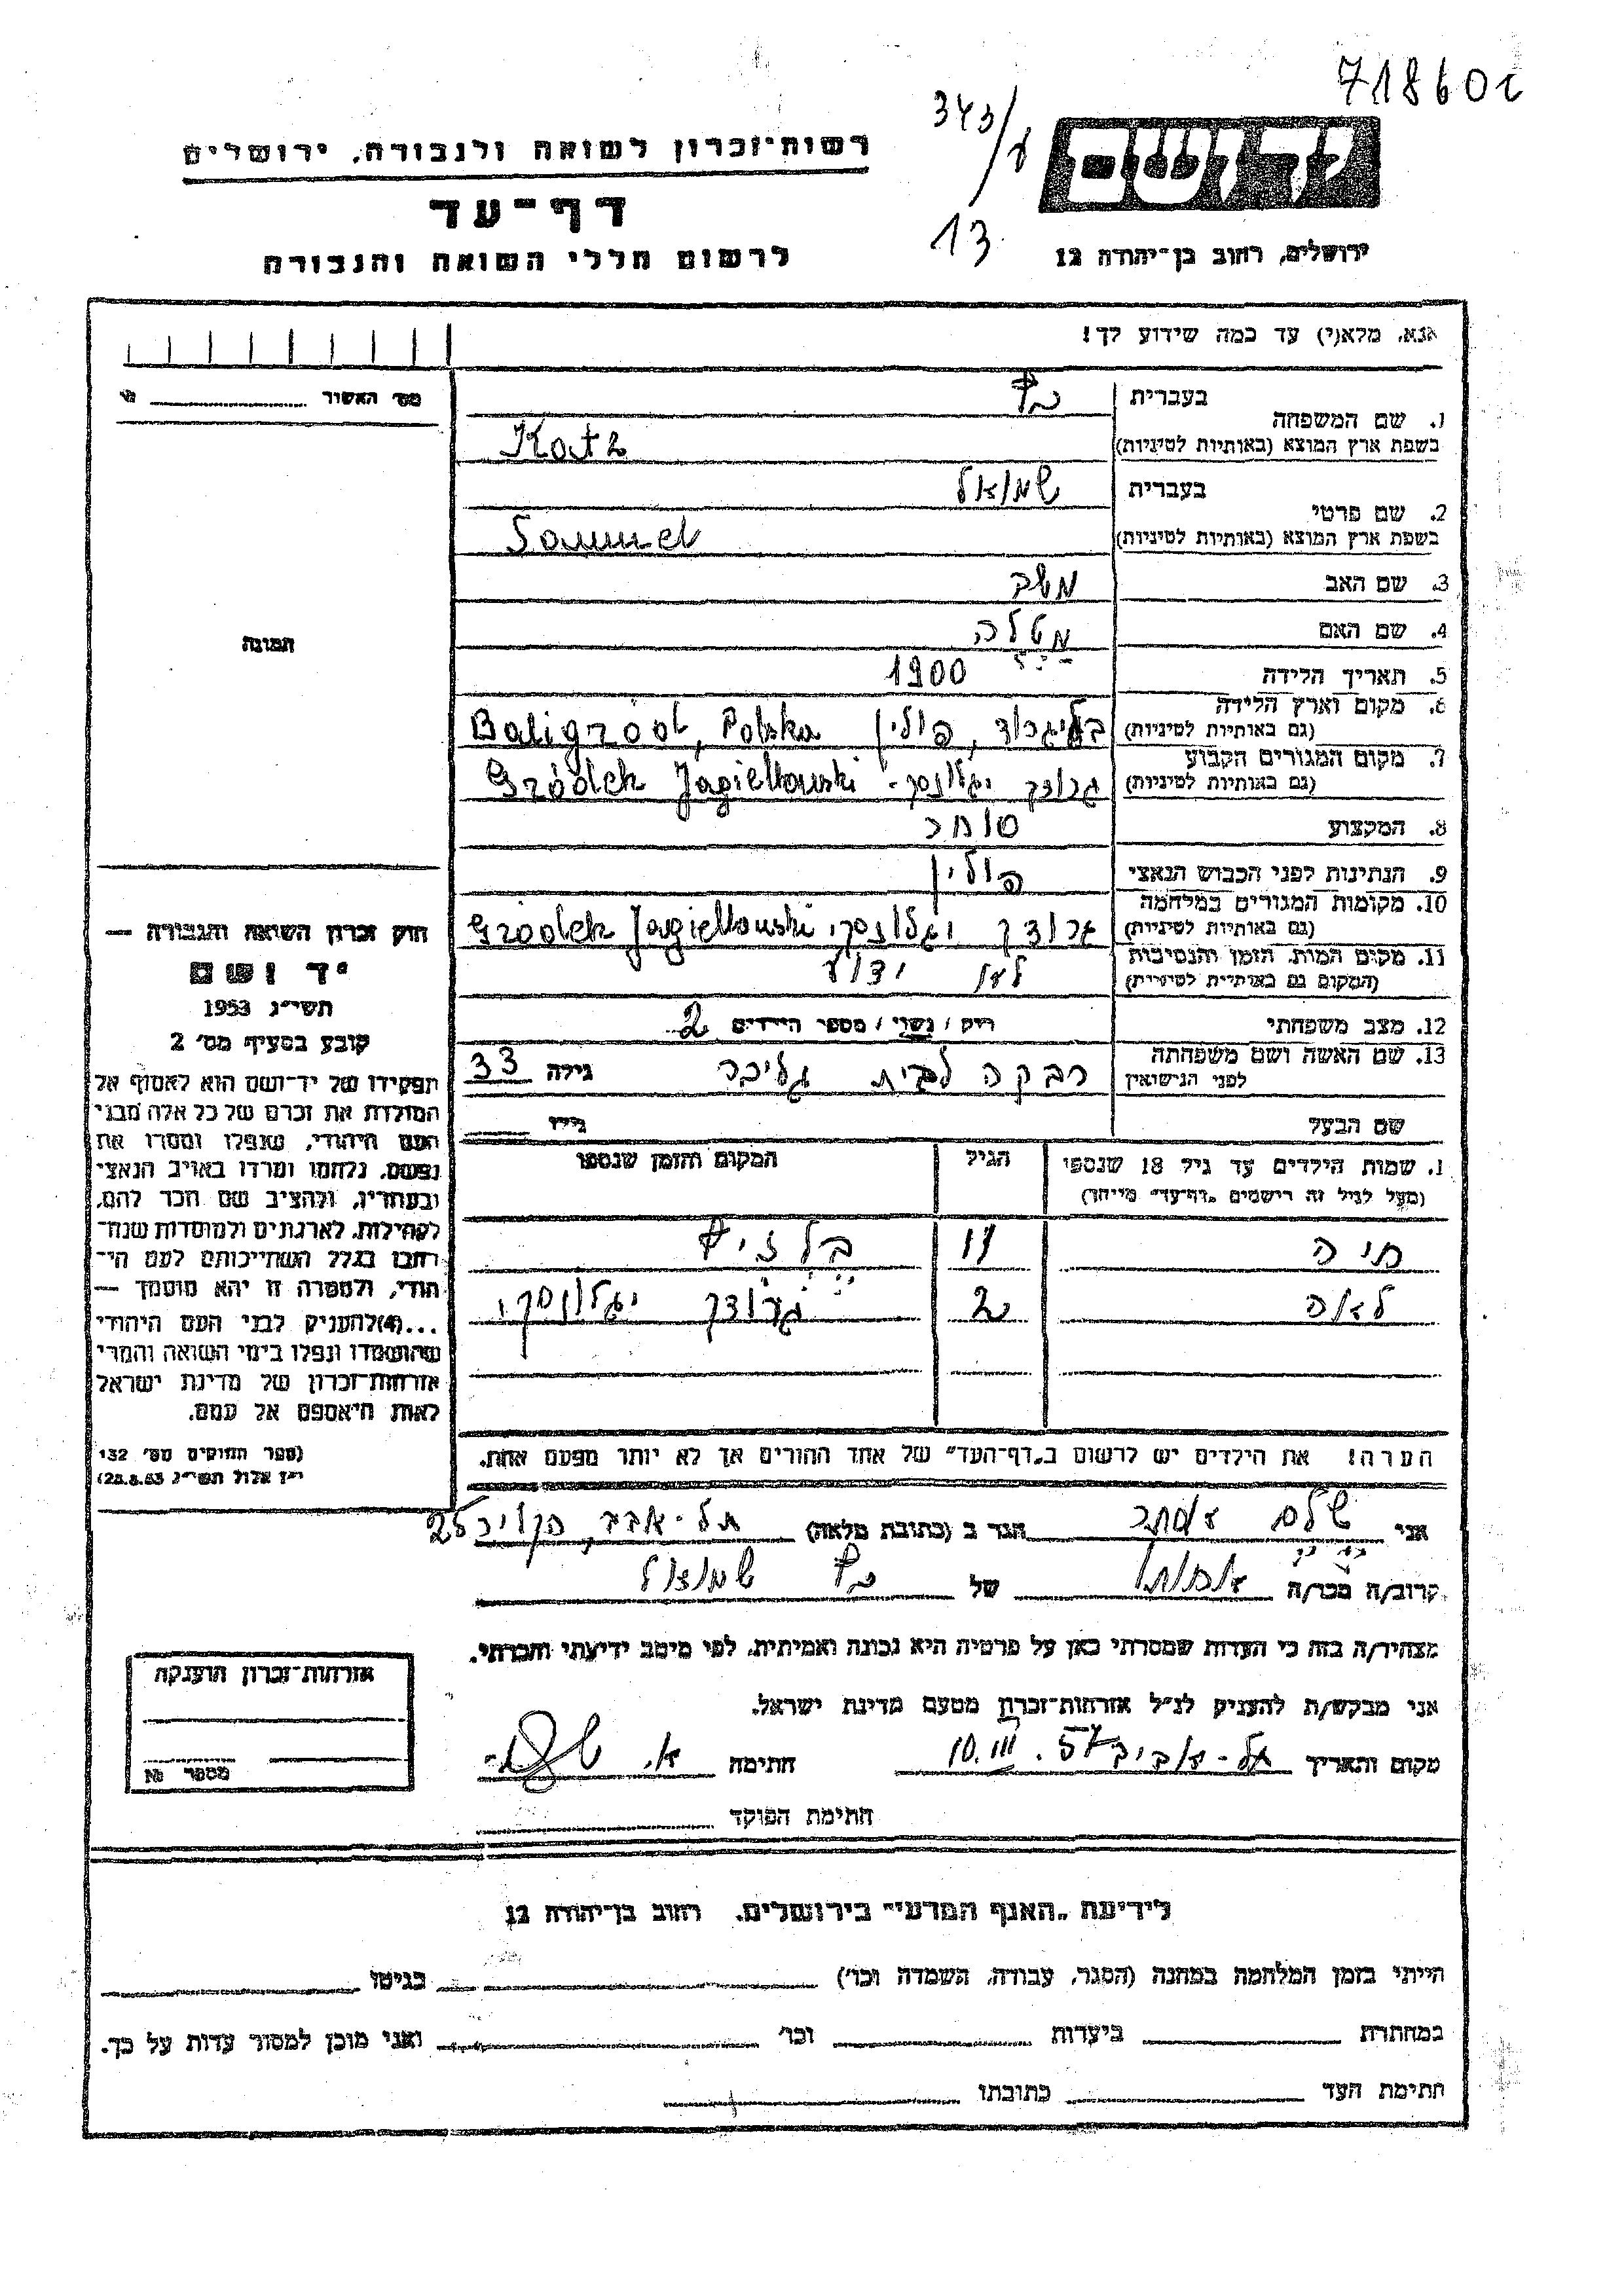 718602
343/8
13
יד ושם
ירושלים, רחוב בן-יהודה 12
רשות-זכרון לשואה ולגבורה, ירושלים
דף-עד
לרשום חללי השואה והגבורה
אנא, מלא(י) עד כמה שידוע לך!
מס' האשור
1. שם המשפחה
בעברית כץ
בשפת ארץ המוצא (באותיות לטיניות) Katz
2. שם פרטי
בעברית שמואל
בשפת ארץ המוצא (באותיות לטיניות) Samuel
3. שם האב משה
4. שם האם מטלה
5. תאריך הלידה 1900
6. מקום וארץ הלידה
(גם באותיות לטיניות) בליגרוד, פולין Baligrod, Polska
7. מקום המגורים הקבוע
(גם באותיות לטיניות) גרודק יגלונסקי Gródek Jagielloński
8. המקצוע סוחר
9. הנתינות לפני הכבוש הנאצי פולין
10. מקומות המגורים במלחמה
(גם באותיות לטיניות) גרודק יגלונסקי Gródek Jagielloński
11. מקום המות, הזמן והנסיבות
(המקום גם באותיות לטיניות) לא ידוע
12. מצב משפחתי רוק / נשוי / מספר הילדים 2
13. שם האשה ושם משפחתה
לפני הנישואין רבקה לבית גילה 33
שם הבעל גילו
התמונה
חוק זכרון השואה והגבורה —
יד ושם
תשי"ג 1953
קובע בסעיף מס' 2
תפקידו של יד-ושם הוא לאסוף אל
המולדת את זכרם של כל אלה מבני
העם היהודי, שנפלו ומסרו את
נפשם, נלחמו ומרדו באויב הנאצי
ובעוזריו, ולהציב שם וזכר להם,
לקהילות, לארגונים ולמוסדות שנח-
רבו בגלל השתייכותם לעם הי-
הודי, ולמטרה זו יהא מוסמך —
...(4)להעניק לבני העם היהודי
שהושמדו ונפלו בימי השואה והמרי
אזרחות-זכרון של מדינת ישראל
לאות היאספם אל עמם.
(ספר החוקים מס' 132
י"ז אלול תשי"ג 28.8.53)
1. שמות הילדים עד גיל 18 שנספו
(מעל לגיל זה רישמים „דף-עד" מיוחד)
הגיל
המקום והזמן שנספו
חיה 11 בלזיץ
לאה 2 גרודק יגלונסקי
הערה! את הילדים יש לרשום ב„דף-העד" של אחד ההורים אך לא יותר מפעם אחת.
אני שלם אסתר הגר ב (כתובת מלאה) תל-אביב,
קרוב/ה מכר/ה אחותו של כץ שמואל
מצהיר/ה בזה כי העדות שמסרתי כאן על פרטיה היא נכונה ואמיתית, לפי מיטב ידיעתי והכרתי.
אני מבקש/ת להעניק לנ"ל אזרחות-זכרון מטעם מדינת ישראל.
מקום ותאריך תל-אביב 10.III.57 חתימה א.
חתימת הפוקד
אזרחות-זכרון הוענקה
מספר №
לידיעת „האגף המדעי" בירושלים, רחוב בן-יהודה 12
הייתי בזמן המלחמה במחנה (הסגר, עבודה, השמדה וכו') בגיטו
במחתרת ביערות וכו' ואני מוכן למסור עדות על כך.
חתימת העד כתובתו